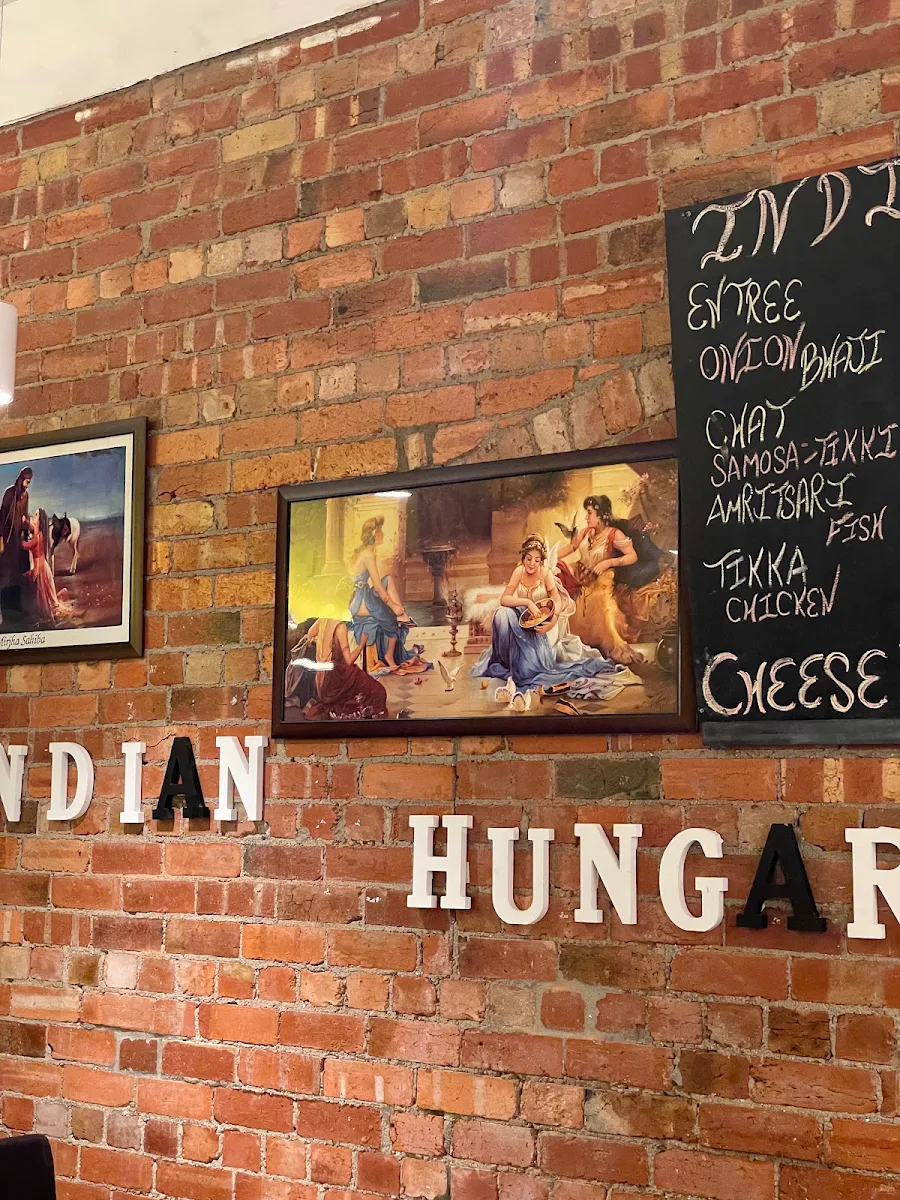 INDI
ENTREE
ONION BHAJI
CHAT
SAMOSA-TIKKI
AMRITSARI
FISH
TIKKA
CHICKEN
CHEESE
Mirjha Sahiba
NDIAN
HUNGAR